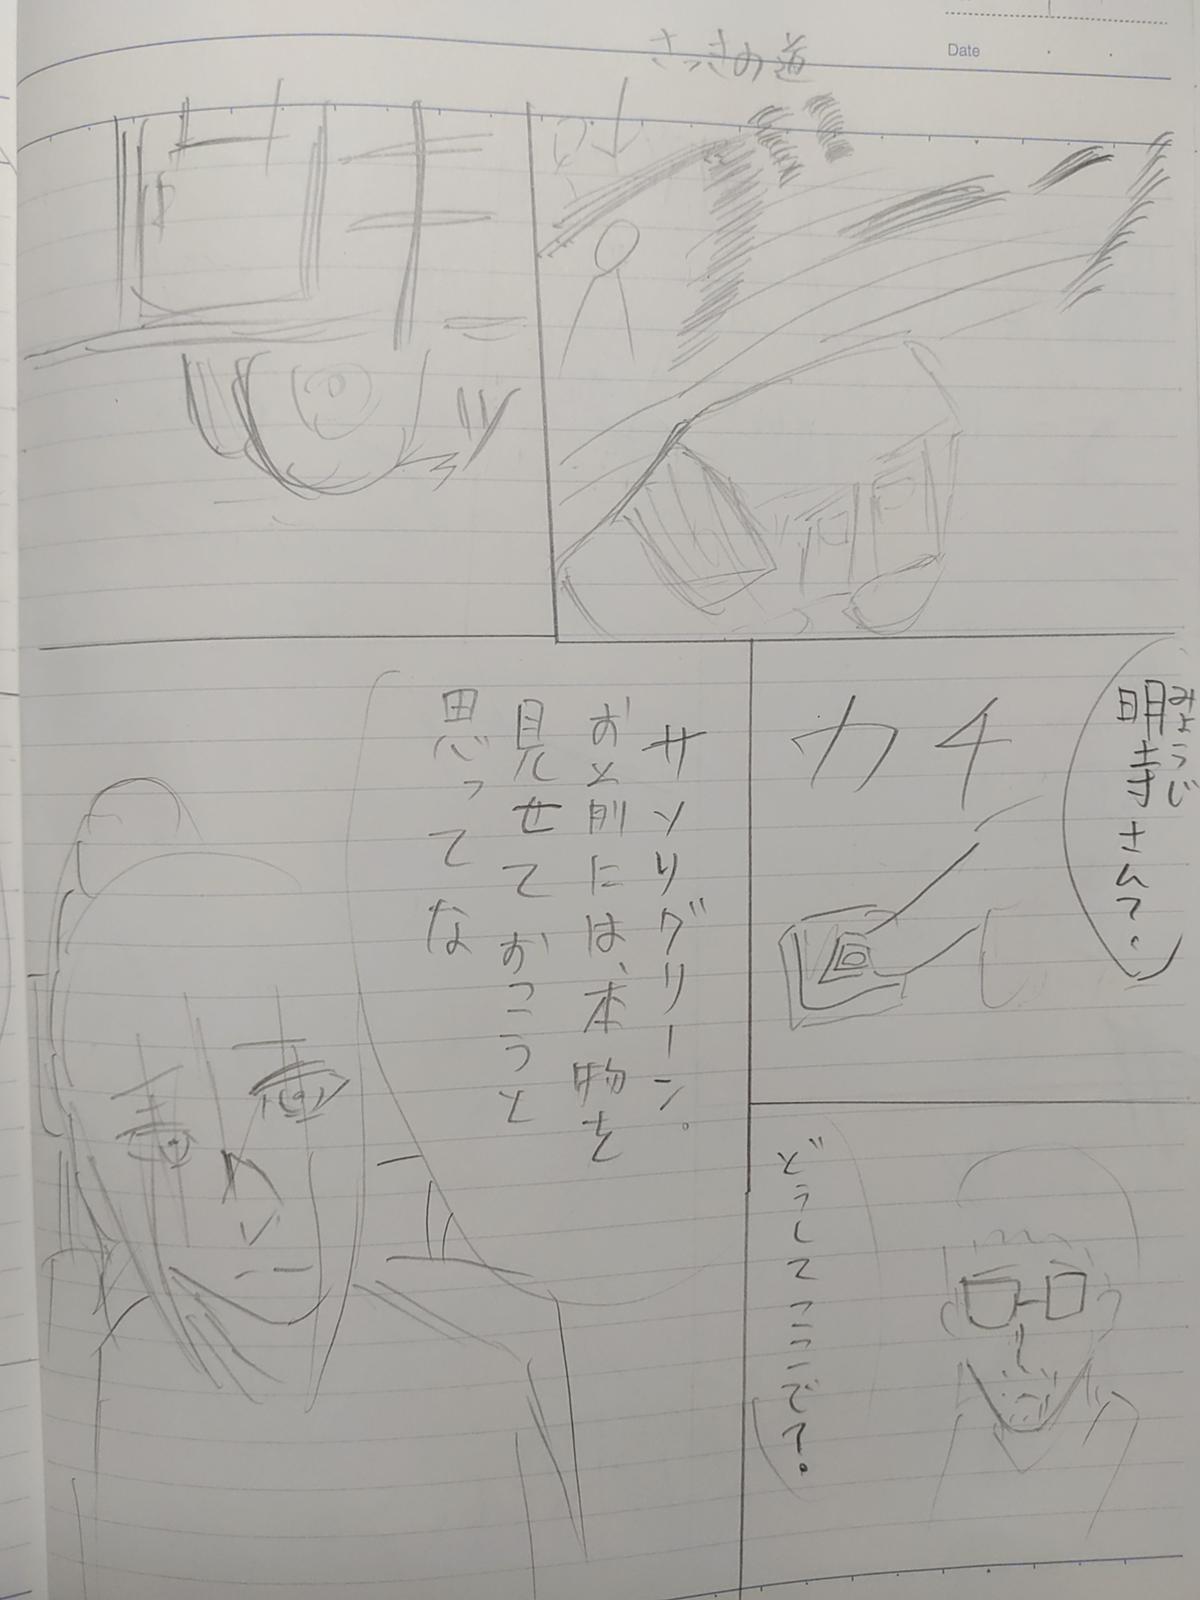 Date
さっきの道
キ
キッ
明寺さん?
みょうじ
カチ
どうしてここで?
サンリグリーン。
おと前には、本物を
見せておこうと
思ってな